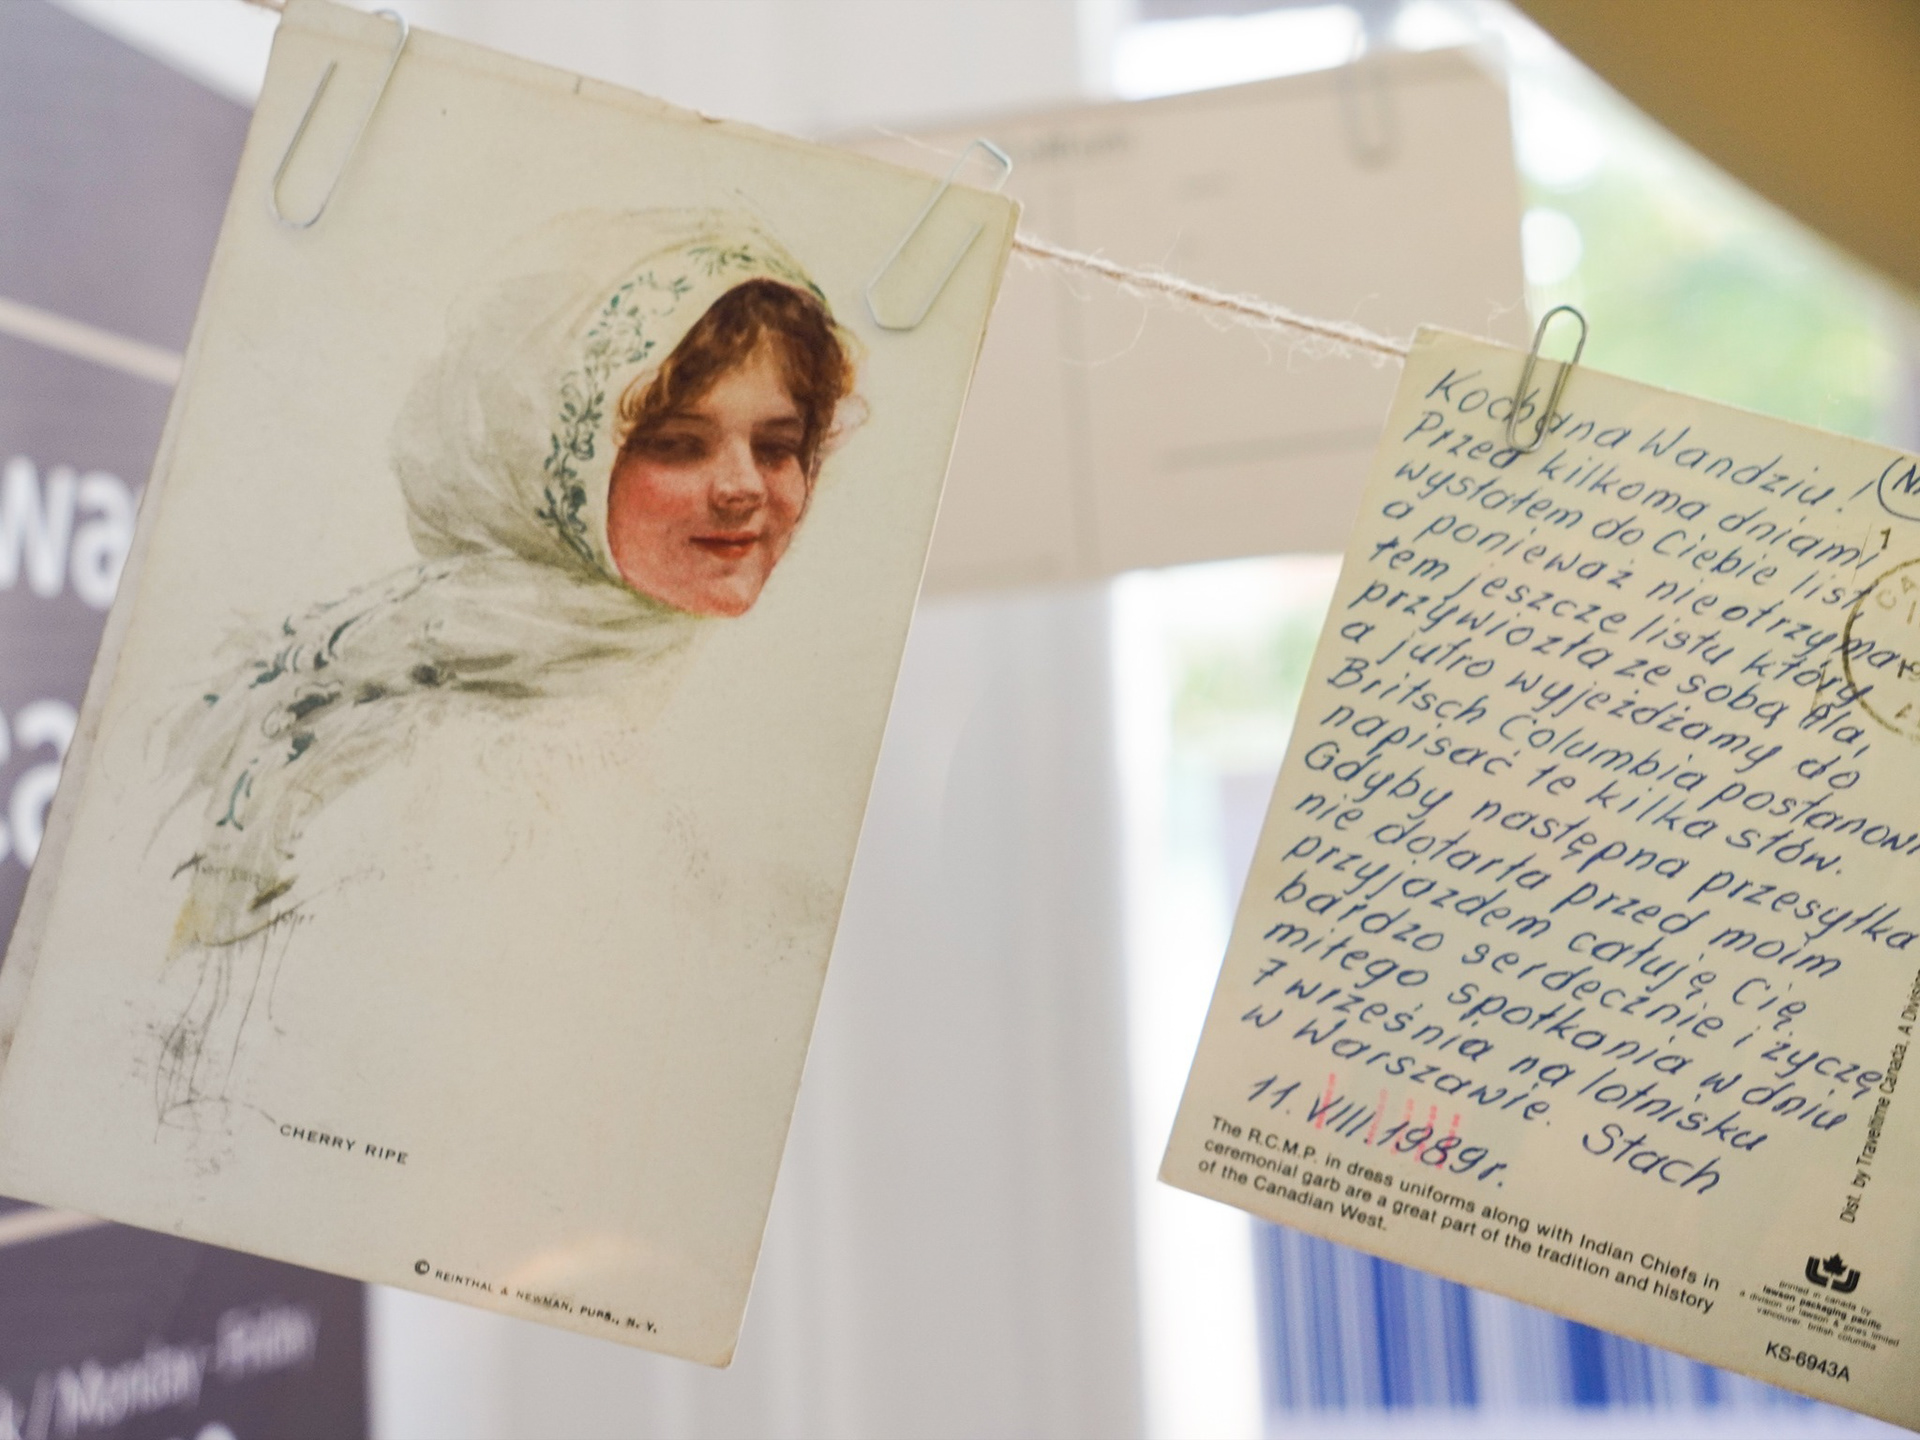 wa
ca
Monday
CHERRY RIPE
© REINTHAL & NEWMAN, PUBS., N. Y.
Kochana Wandziu!
Przed kilkoma dniami
wysłałem do Ciebie list
a ponieważ nie otrzyma-
łem jeszcze listu który
przywiozła ze sobą Ala,
a jutro wyjeżdżamy do
Britsch Columbia postanowi
napisać te kilka słów.
Gdyby następna przesyłka
nie dotarła przed moim
przyjazdem całuję Cię
bardzo serdecznie i życzę
miłego spotkania w dniu
7 września na lotnisku
w Warszawie. Stach
11. VIII. 1989r.
The R.C.M.P. in dress uniforms along with Indian Chiefs in
ceremonial garb are a great part of the tradition and history
of the Canadian West.
Dist. by Traveltime Canada, A Divisi
printed in canada by
lawson packaging pacific
a division of lawson & jones limited
vancouver, british columbia
KS-6943A